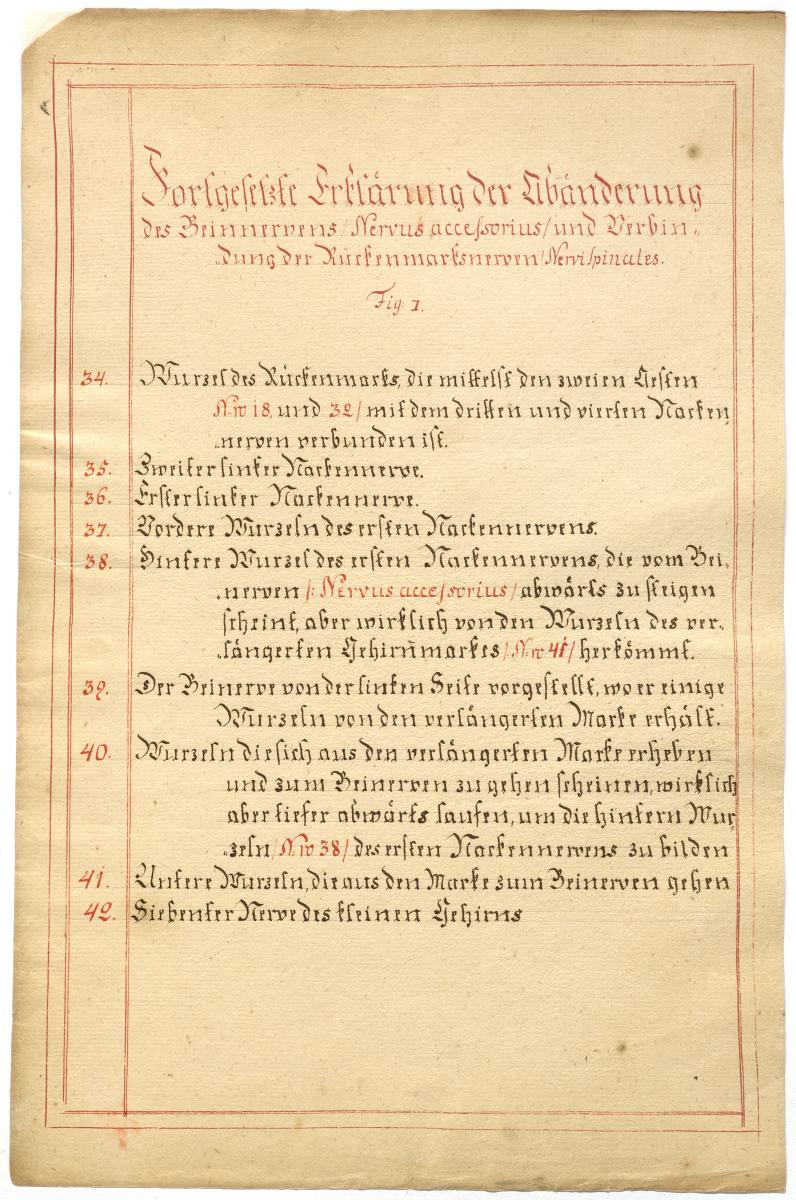 Fortgesetzte Erklärung der Abänderung
des Beinnervens /Nervus accessorius/ und Verbin„
„dung der Rückenmarksnerven /Nervi spinales.
Fig: 1.
34. Wurzel des Rückenmarks, die mittelst den zweien Aesten
N.ro 18, und 32/ mit dem dritten und vierten Nacken„
„nerven verbunden ist.
35. Zweiter linker Nackennerve.
36. Erster linker Nackennerve.
37. Vordere Wurzeln des ersten Nackennervens.
38. Hintere Wurzel des ersten Nackennervens, die vom Bei„
„nerven /: Nervus accessorius/ abwärts zu steigen
scheint, aber wirklich von den Wurzeln des ver„
„längerten Gehirnmarkes /N.ro 41/ herkömmt.
39. Der Beinerve von der linken Seite vorgestellt, wo er einige
Wurzeln von den verlängerten Marke erhält.
40. Wurzeln die sich aus den verlängerten Marke erheben
und zum Beinerven zu gehen scheinen, wirklich
aber tiefer abwärts laufen, um die hintern Wur„
„zeln /N.ro 38/ des ersten Nackennervens zu bilden
41. Untere Wurzeln, die aus den Marke zum Beinerven gehen
42. Siebenter Nerve des kleinen Gehirns